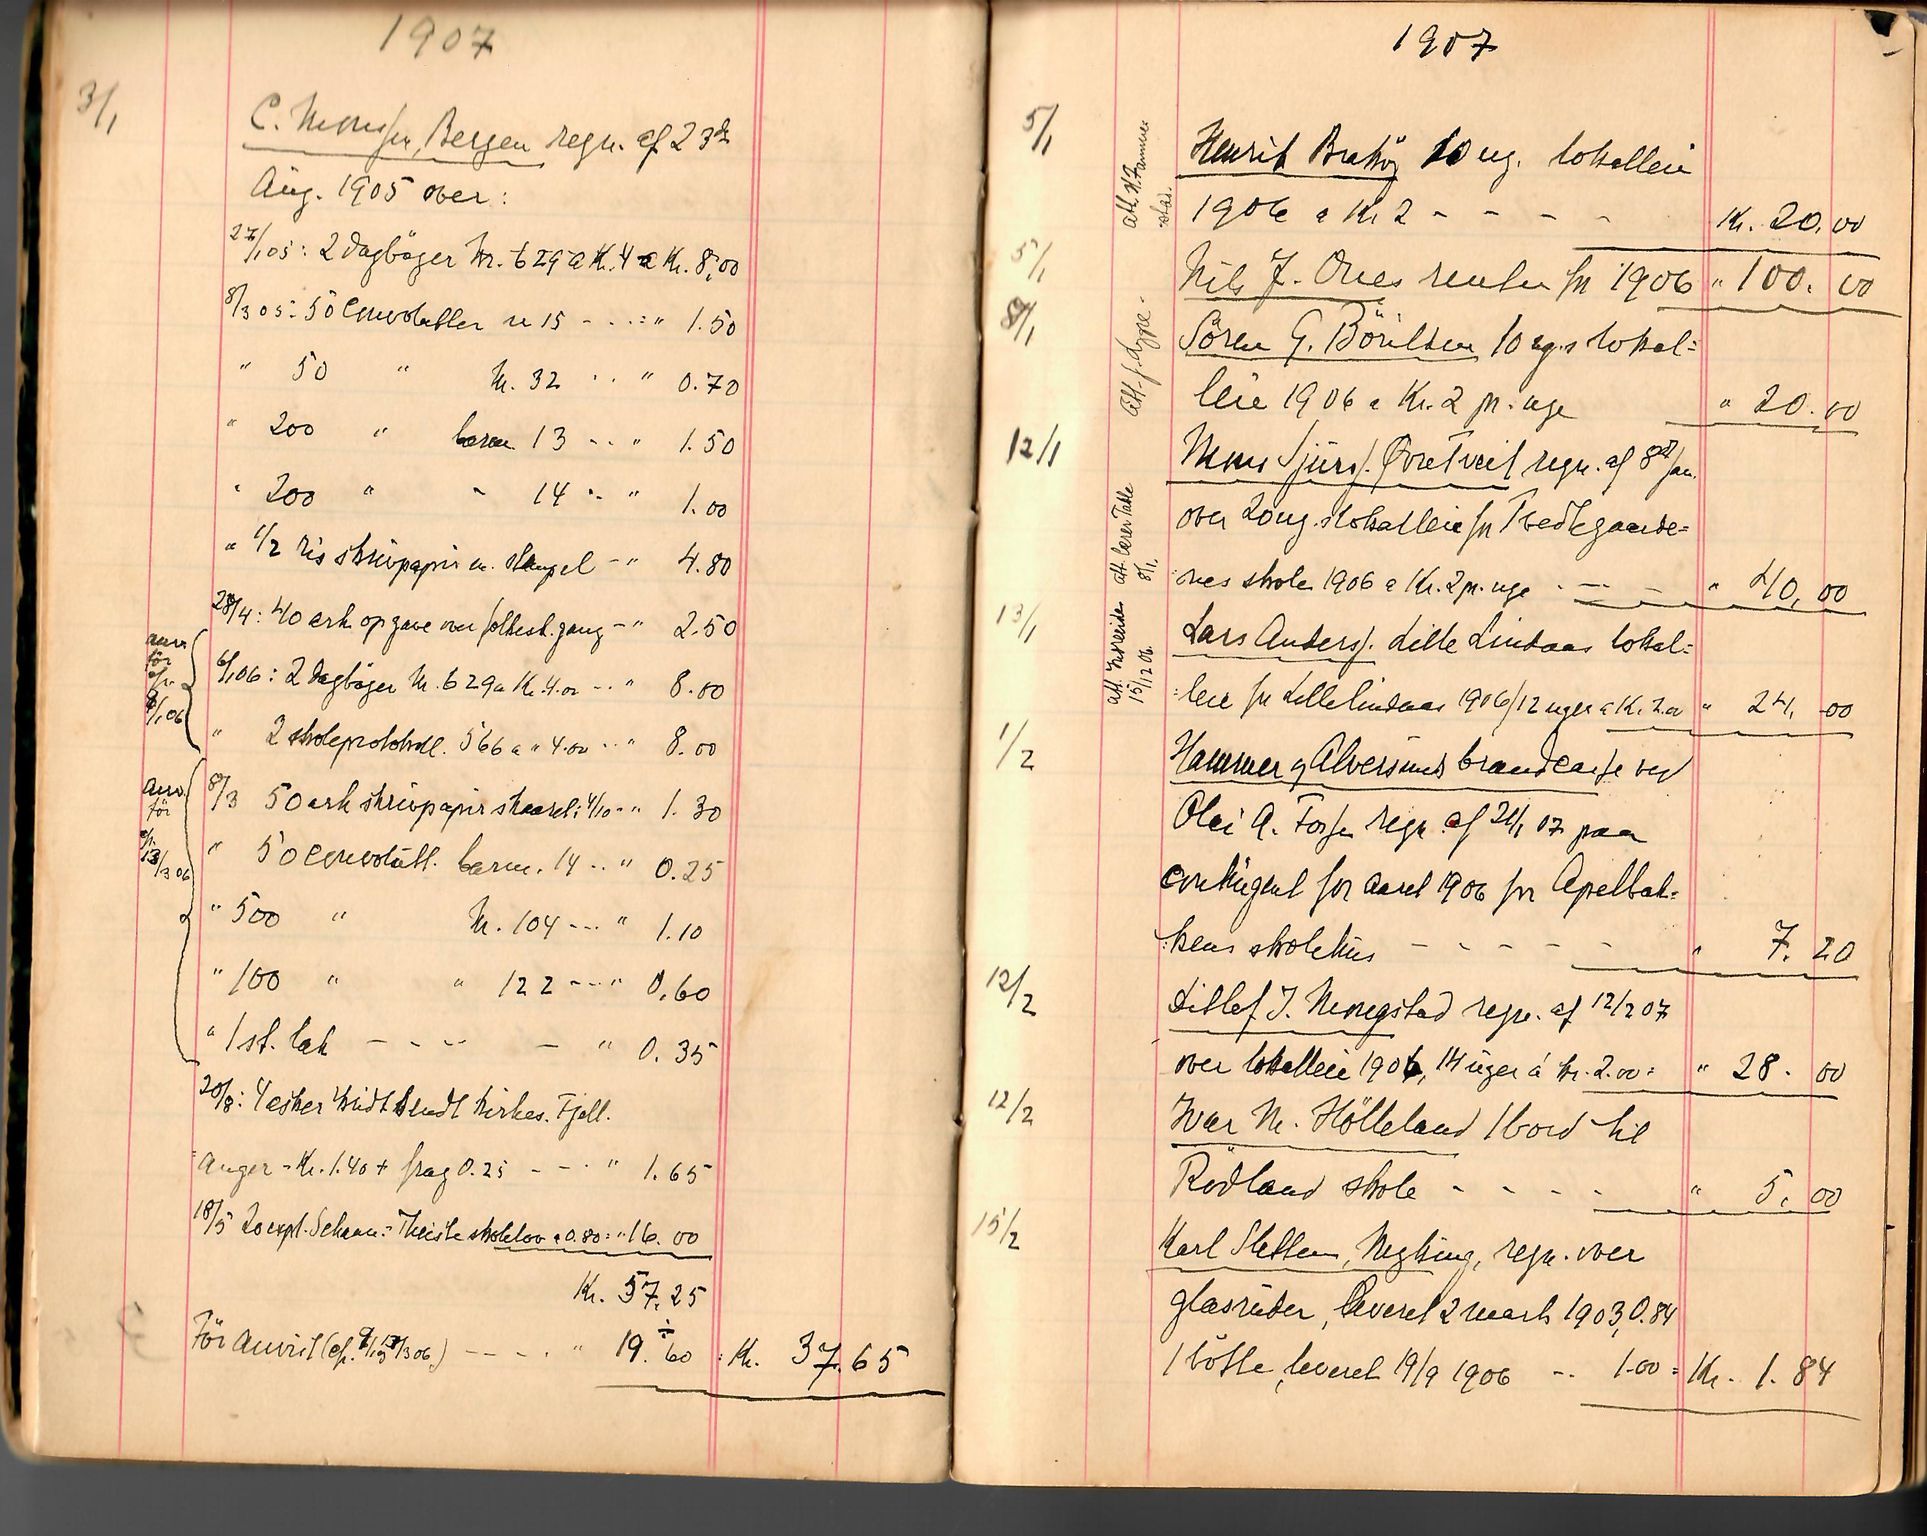 1907
3/1
C. Monsen, Bergen regn. af 23de
Aug. 1905 over:
27/1 05: 2 dagbøger Nr. 629 a Kr. 4 = Kr. 8,00
8/3 05: 50 Convolutter nr 15 - . . = " 1.50
" 50 " Nr. 32 . . " 0.70
" 200 " 13 - . . " 1.50
" 200 " " 14 - . " 1.00
" 1/2 ris skrivpapir m. stempel - " 4.80
28/4: 40 ark opgave over folkesk. gang - " 2.50
anv.
før
9/1 06
6/1 06: 2 dagbøger Nr. 629 a Kr. 4.00 - . . " 8.00
" 2 skoleprotokoll. 566 a " 4.00 . . " 8.00
anv.
før
13/3 06
8/3 50 ark skrivpapir skaaret i 4/10 - " 1.30
" 50 Convolutt. 14 - . . " 0.25
" 500 " Nr. 104 - - - " 1.10
" 100 " " 122 - - - " 0.60
" 1 st. lak - - - - - " 0.35
20/8: 4 esker kridt sendt Kirkes. Fjell-
anger = Kr. 1.40 + frag 0.25 - - . " 1.65
18/5 20 expl. Schaan: Theiste skolelov a 0.80 = " 16.00
Kr. 57.25
Før anvist (cf. 9/1, 13/3 06.) - - - . " 19.60 = Kr. 37.65
1907
5/1
Henrik Brakøy 10 ug. lokalleie
1906 a Kr 2 - - - - Kr. 20,00
5/1
Nils J. Ones renter for 1906 " 100.00
8/1
Søren G. 10 ug.s lokal=
leie 1906 a Kr. 2 pr. uge " 20.00
12/1
Mons Sjurs. Øvretveit regn. af 8de Jan.
over 20 ug.s lokalleie for Tvedtegaarde=
nes skole 1906 a Kr. 2 pr. uge - - - " 40,00
att. lærer Takle
8/1.
13/1
Lars Anders. Lille Lindaas lokal=
leie for Lille Lindaas 1906/12 uger a Kr. 2.00 " 24.00
15/12 06.
1/2
Hammer og Alversunds brandcasse ved
Olai A. Fosse regn. af 21/1 07 paa
contingent for aaret 1906 for Apelbak=
kens skolehus - - - - - " 7.20
12/2
Ditlef J. Mongstad regn. af 12/2 07
over lokalleie 1906, 14 uger á kr. 2.00 = " 28.00
12/2
Ivar N. Hølleland 1 bord til
Rødland skole - - - - " 5.00
15/2
Karl Sletten, regn. over
glasruder, leveret 2 mark 1903, 0.84
1 bøtte, leveret 19/9 1906 - . 1.00 = Kr. 1.84